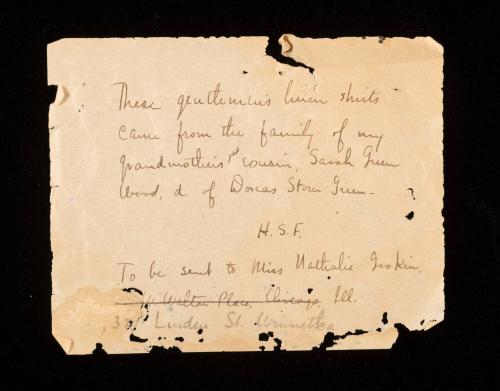 These gentlemen's linen shirts
came from the family of my
grandmother's 1st cousin, Sarah Green
Wood, d. of Dorcas Storer Green-
H.S.F.
To be sent to Miss Nathalie Gookin,
Walter Place, Chicago, Ill.
Linden St. Winnetka